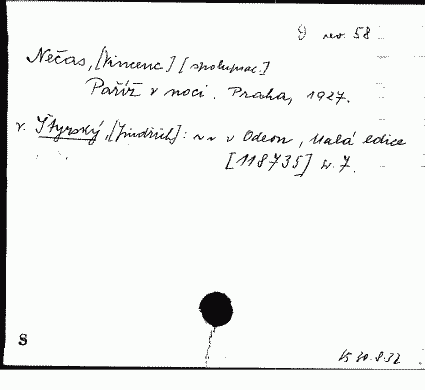 9 rev. 58
Nečas, [Vincenc] [spoluprac.]
Paříž v noci. Praha, 1927.
v. Štyrský, [Jindřich]: ~ v Odeon, Malá edice
[118735] sv. 7.
S
30.8.32